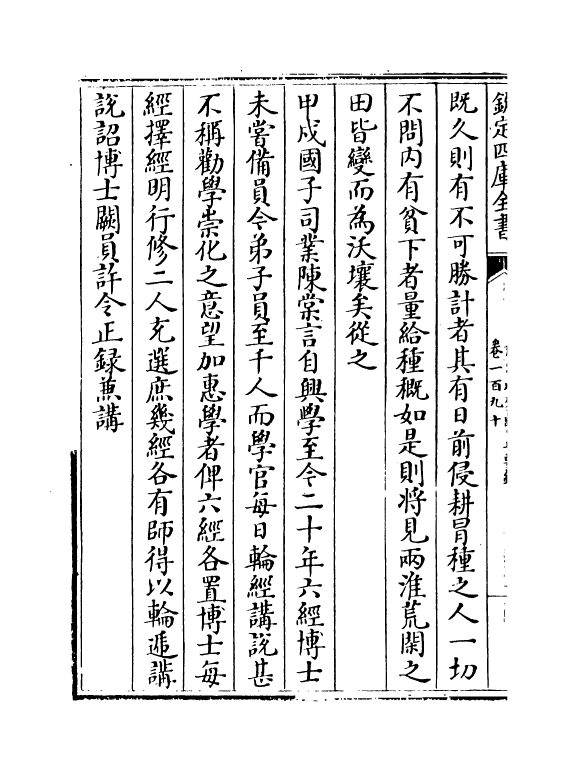 欽定四庫全書
卷一百九十
既久則有不可勝計者其有日前侵耕冒種之人一切
不問内有貧下者量給種穊如是則將見兩淮荒閑之
田皆變而為沃壤矣從之
甲戍國子司業陳棠言自興學至今二十年六經博士
未嘗備員今弟子員至千人而學官每日輪經講說甚
不稱勸學崇化之意望加惠學者俾六經各置博士每
經擇經明行修二人充選庶幾經各有師得以輪遞講
說詔博士闕員許令正録兼講